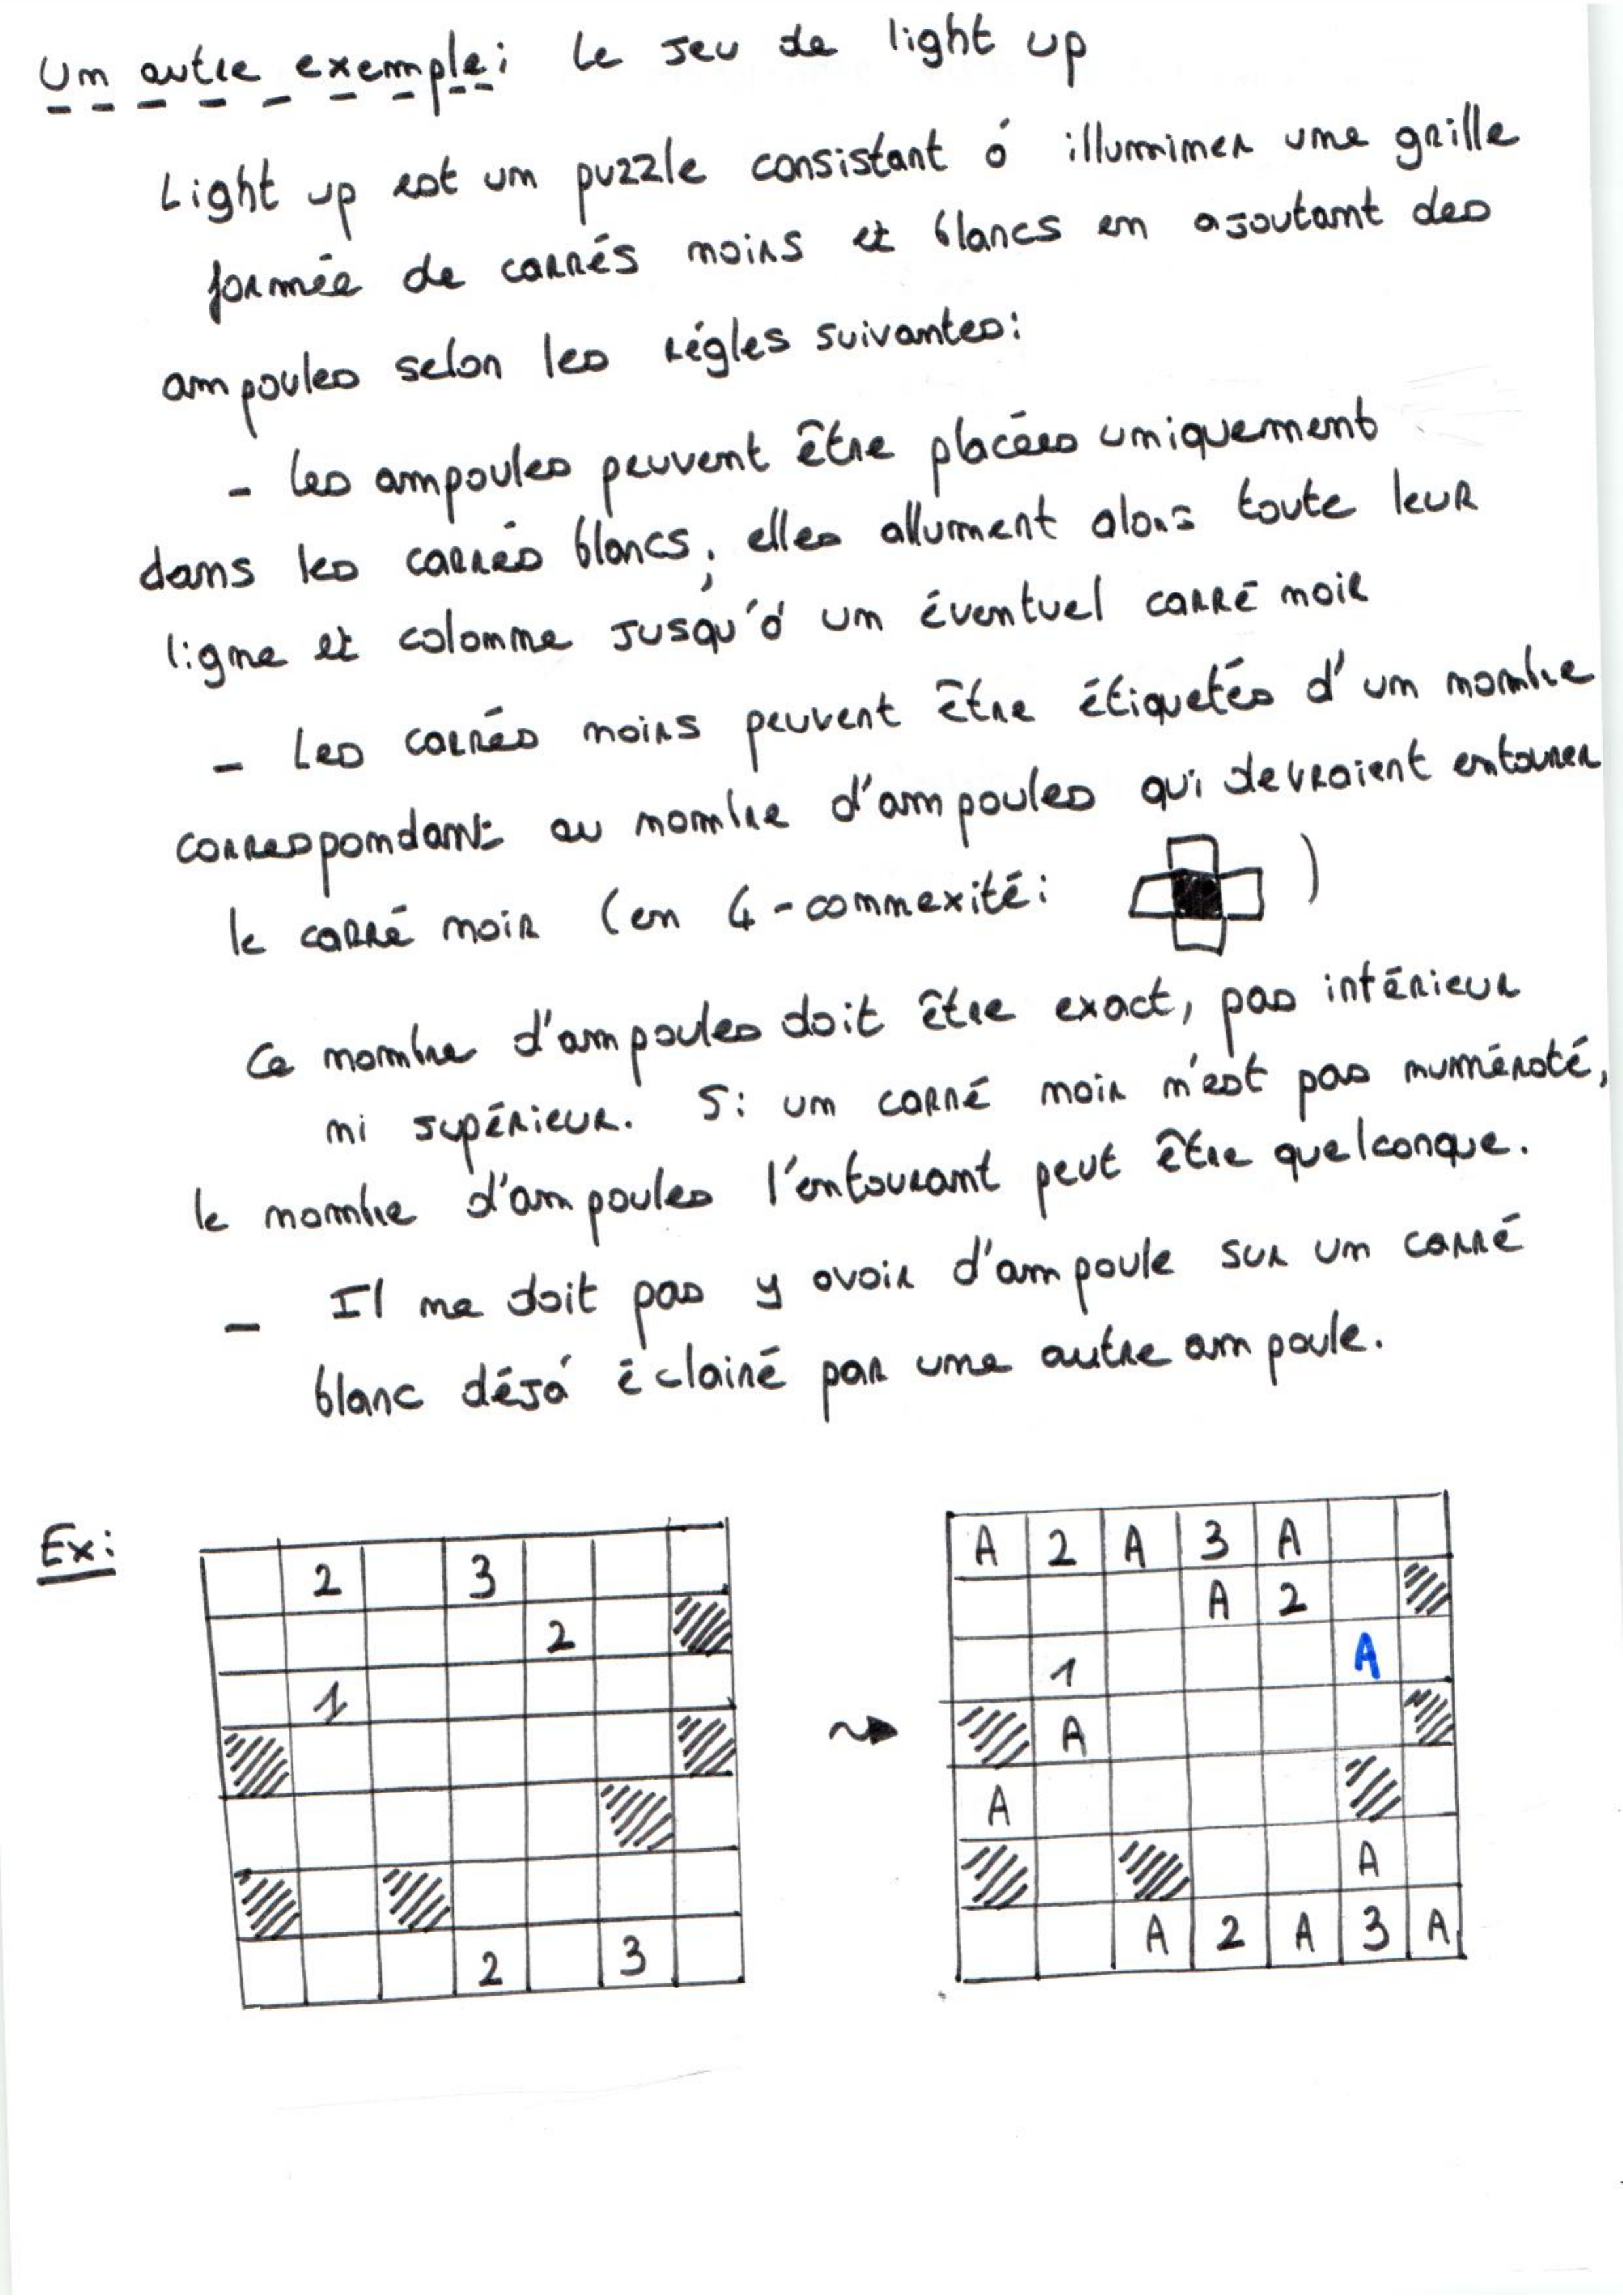 Un autre exemple: Le jeu de light up
Light up est un puzzle consistant à illuminer une grille
formée de carrés noirs et blancs en ajoutant des
ampoules selon les règles suivantes:
- Les ampoules peuvent être placées uniquement
dans les carrés blancs; elles allument alors toute leur
ligne et colonne jusqu'à un éventuel carré noir
- Les carrés noirs peuvent être étiquetés d'un nombre
correspondant au nombre d'ampoules qui devraient entourer
le carré noir (en 4-connexité: )
Ce nombre d'ampoules doit être exact, pas intérieur
ni supérieur. Si un carré noir n'est pas numéroté,
le nombre d'ampoules l'entourant peut être quelconque.
- Il ne doit pas y avoir d'ampoule sur un carré
blanc déjà éclairé par une autre ampoule.
Ex:
2 3
2
1
2 3
A 2 A 3 A
A 2
1 A
A
A
A
A 2 A 3 A